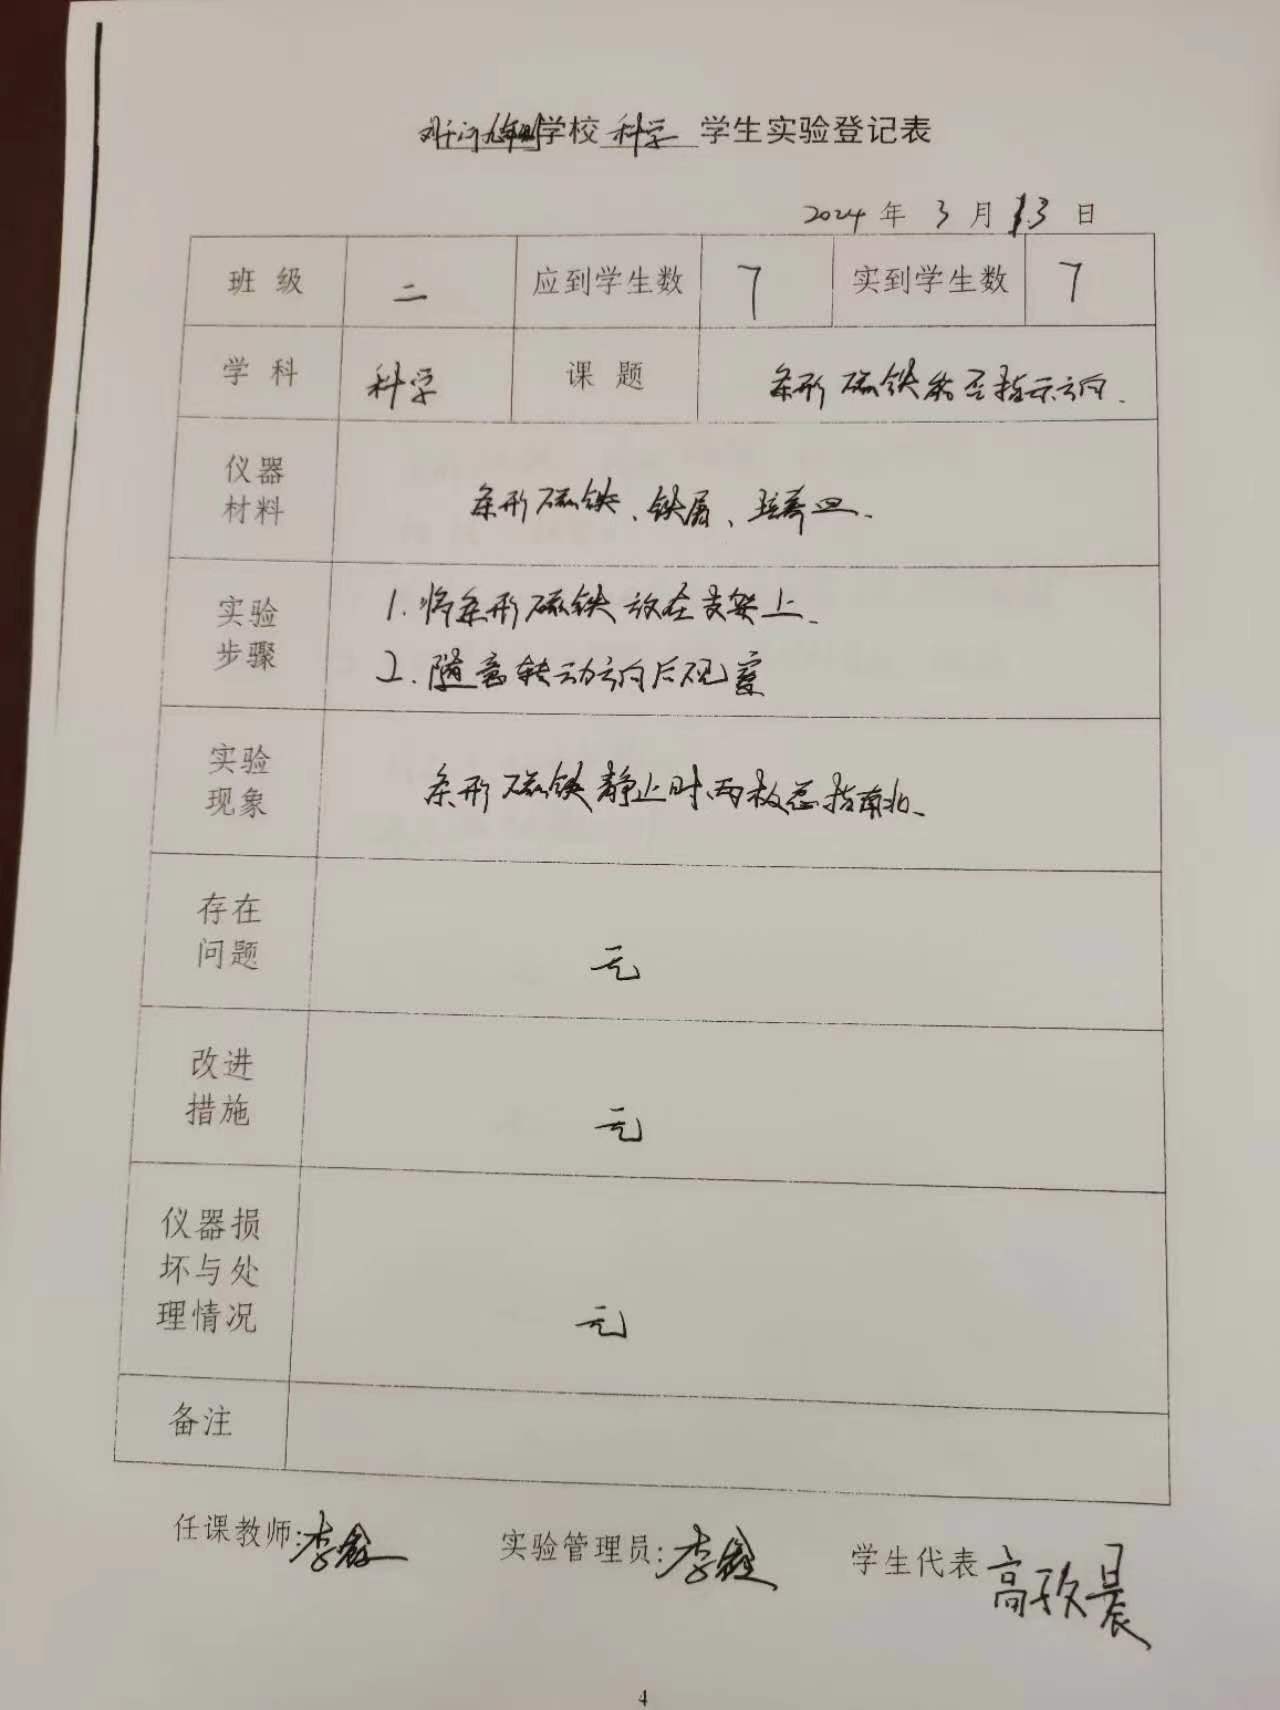 九年制学校 科学 学生实验登记表
2024 年 3 月 13 日
班 级 二 应到学生数 7 实到学生数 7
学 科 科学 课 题 条形磁铁能否指示方向.
仪器
材料
条形磁铁、铁屑、培养皿.
实验
步骤
1. 将条形磁铁放在支架上.
2. 随意转动方向后观察
实验
现象
条形磁铁静止时,两极总指南北.
存在
问题
无
改进
措施
无
仪器损
坏与处
理情况
无
备注
任课教师: 李鑫 实验管理员: 李鑫 学生代表 高玫晨
4